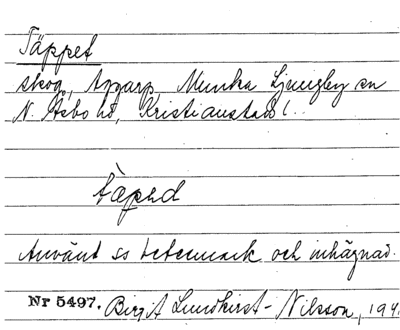 Täppet
skog, Aggarp, Munka Ljungby sn
N. Åsbo hd, Kristianstads l.
tä̀pəd
Använt ss betesmark och inhägnad.
Nr 5497. Birgit Lundkvist-Nilsson, 194.